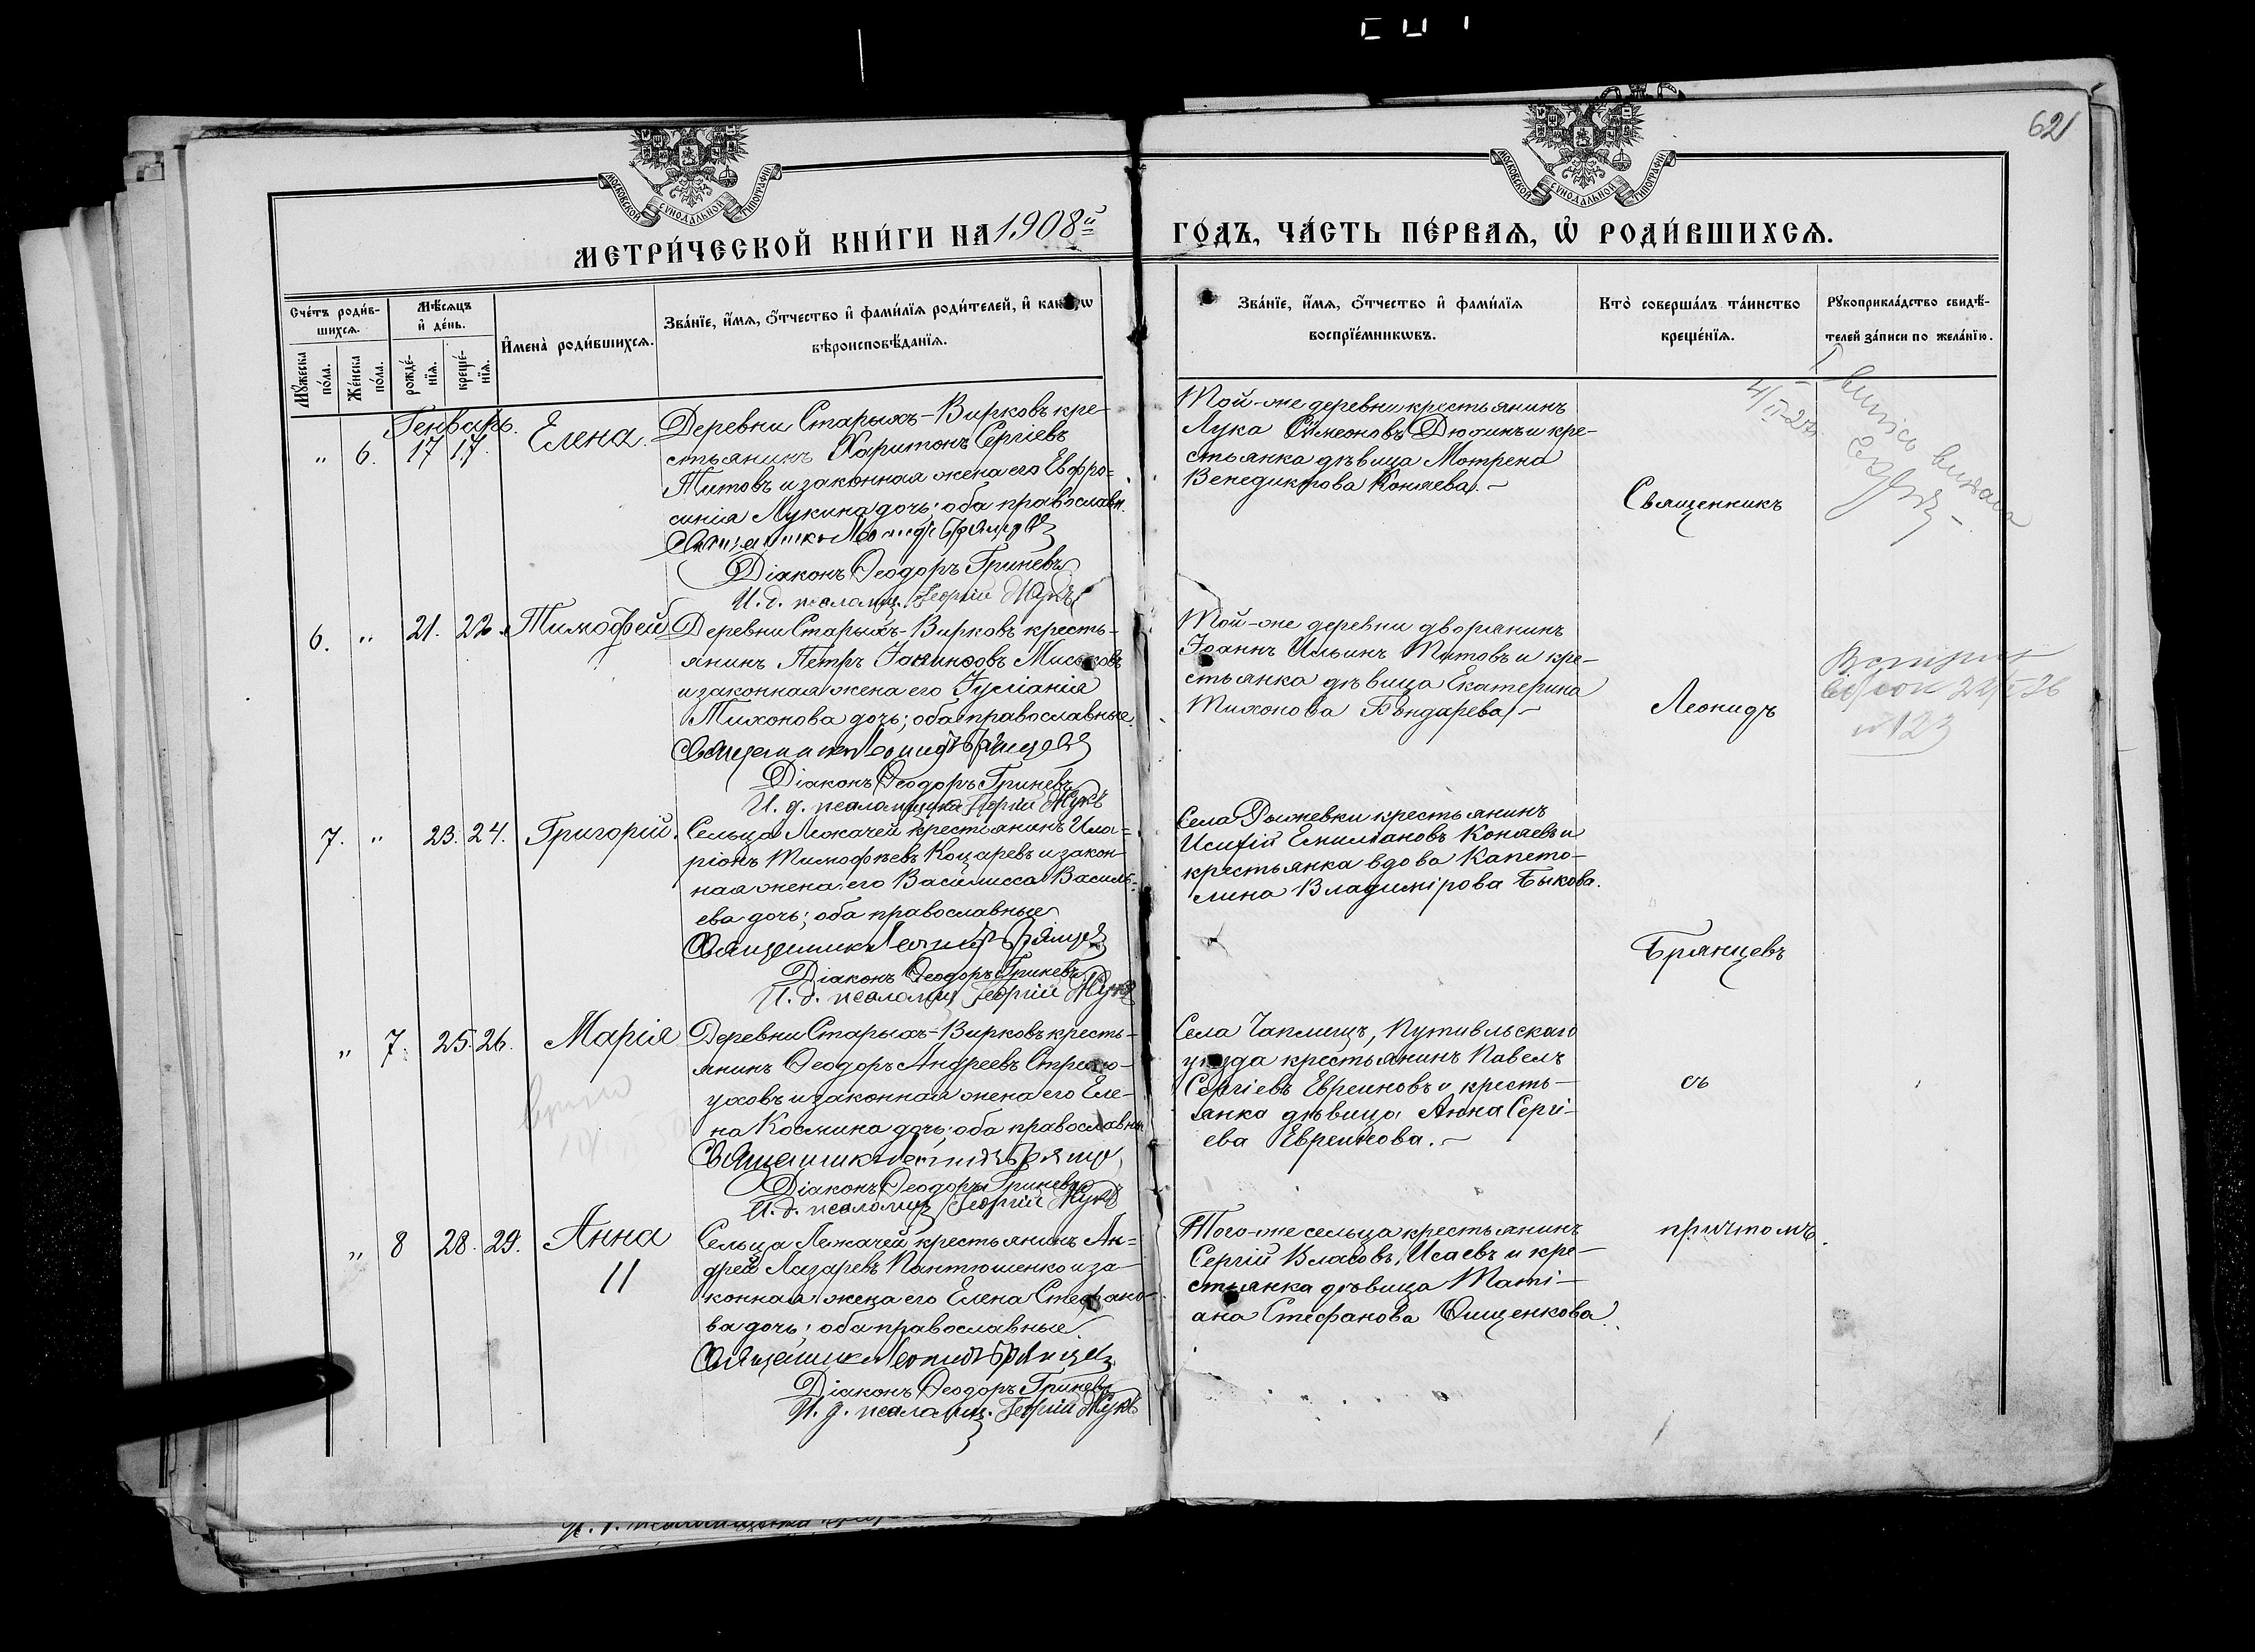 621
МОСКОВСКОЙ СУНОДАЛЬНОЙ ТИПОГРАФІИ
МОСКОВСКОЙ СУНОДАЛЬНОЙ ТИПОГРАФІИ
МЕТРИ́ЧЕСКОЙ КНИ́ГИ НА 1908й ГО́ДЪ, ЧА́СТЬ ПЕ́РВАѦ, Ѡ РОДИ́ВШИХСѦ.
Сче́тъ роди́в-
шихсѧ.
Мꙋ́жеска по́ла.
Же́нска по́ла.
Мѣ́сѧцъ
и҆ де́нь.
рожде́-
нїѧ.
креще́-
нїѧ.
И҆мена̀ роди́вшихсѧ.
Зва́нїе, и҆́мѧ, ѻ҆́тчество и҆ фами́лїѧ роди́телей, и҆ како́гѡ
вѣроисповѣ́данїѧ.
Зва́нїе, и҆́мѧ, ѻ҆́тчество и҆ фами́лїѧ
воспрїе́мникѡвъ.
Кто̀ соверша́лъ та́инство
креще́нїѧ.
Рꙋкоприкла́дство свидѣ́-
телей за́писи по жела́нїю.
Генварь.
" 6. 17 17. Елена.
Деревни Старыхъ-Вирковъ кре-
стьянинъ Харитонъ Сергіевъ
Титовъ и законная жена его Евфро-
синія Лукина дочь; оба православн.
Священникъ Леонидъ Брянцевъ
Діаконъ Ѳеодоръ Гриневъ
И. д. псаломщ. Георгій Жукъ
Той-же деревни крестьянинъ
Лука Симеоновъ Дюжинъ и кре-
стьянка дѣвица Мотрена
Венедиктова Коняева.
Священникъ
4/II-27
6. " 21. 22. Тимофей
Деревни Старыхъ-Вирковъ кресть-
янинъ Петръ Іакинфовъ
и законная жена его Іуліанія
Тихонова дочь; оба православные.
Священникъ Леонидъ Брянцевъ
Діаконъ Ѳеодоръ Гриневъ
И. д. псаломщика Георгій Жукъ
Той-же деревни дворянинъ
Іоаннъ Ильинъ Титовъ и кре-
стьянка дѣвица Екатерина
Тихонова Бондарева
Леонидъ
№ 123
7. " 23. 24. Григорій.
Сельца Лежачей крестьянинъ Ила-
ріонъ Тимофѣевъ Коцаревъ и закон-
ная жена его Василисса Василь-
ева дочь; оба православные
Священникъ Леонидъ Брянцевъ
Діаконъ Ѳеодоръ Гриневъ
И. д. псаломщ Георгій Жукъ
Села Рыжевки крестьянинъ
Емиліановъ Коняевъ и
крестьянка вдова Капето-
лина Владимірова Быкова.
Брянцевъ
" 7. 25. 26. Марія
Деревни Старыхъ-Вирковъ кресть-
янинъ Ѳеодоръ Андреевъ
уховъ и законная жена его Еле-
на Космина дочь; оба православн
Священникъ Леонидъ Брянцевъ
Діаконъ Ѳеодоръ Гриневъ
И. д. псаломщ Георгій Жукъ
Села Чаплищъ, Путивльскаго
уѣзда крестьянинъ Павелъ
Сергіевъ Евреиновъ и кресть-
янка дѣвица Анна Сергі-
ева Евреинова.
съ
" 8 28. 29. Анна
11
Сельца Лежачей крестьянинъ Ан-
дрей Лазаревъ Пантюшенко и за-
конная жена его Елена Стефано-
ва дочь; оба православные.
Священникъ Леонидъ Брянцевъ
Діаконъ Ѳеодоръ Гриневъ
И. д. псаломщ. Георгій Жукъ
Того-же сельца крестьянинъ
Сергій Власовъ Исаевъ и кре-
стьянка дѣвица Таті-
ана Стефанова Онищенкова.
причтомъ.